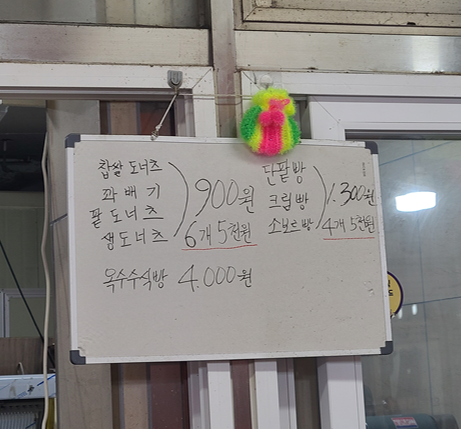 찹쌀 도너츠
꽈 배 기
팥 도 너 츠
생 도 너 츠
900원
6개 5천원
단팥빵
크림빵
소보르빵
1.300원
4개 5천원
옥수수식빵 4.000원